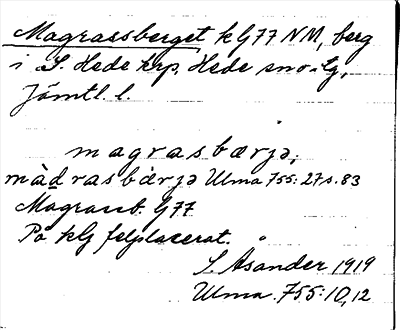 Magrassberget k G77 NM, berg
i S. Hede krp, Hede sn o. lg,
Jämtl. l.
magrasbærjə,
màdrasbærjə Ulma 755: 27 s. 83
Magrassb. G77
På kG felplacerat.
S. Åsander 1919
Ulma. 755: 10, 12